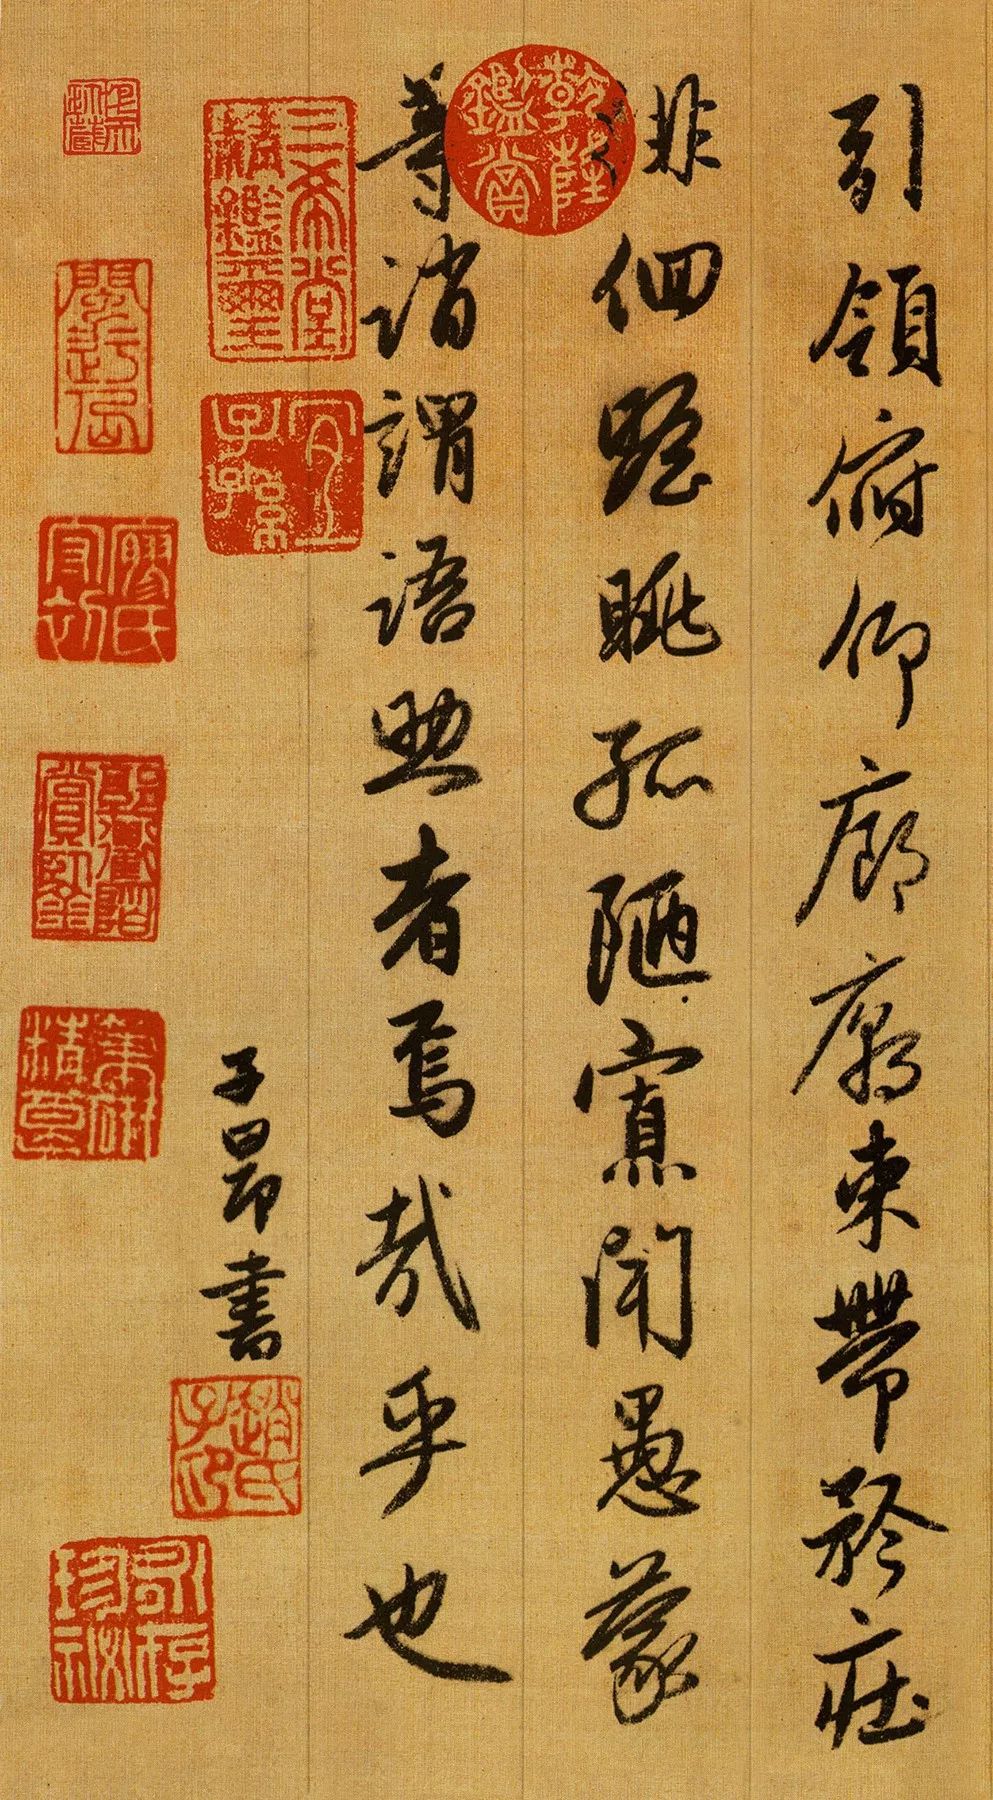 引領俯仰廊廟束帶矜莊
徘徊瞻眺孤陋寡聞愚蒙
等誚謂語助者焉哉乎也
子昂書
乾隆鑑賞
三希堂精鑑璽
宜子孫
趙氏子昂